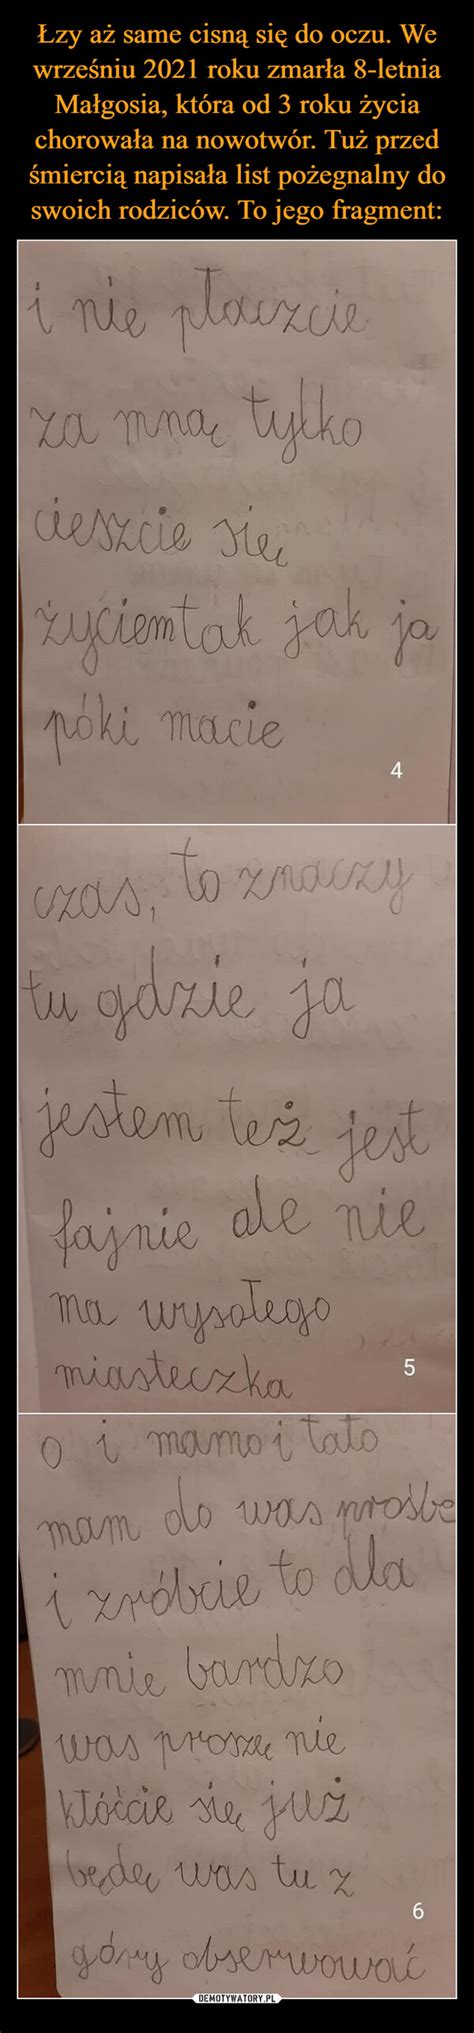 Łzy aż same cisną się do oczu. We
wrześniu 2021 roku zmarła 8-letnia
Małgosia, która od 3 roku życia
chorowała na nowotwór. Tuż przed
śmiercią napisała list pożegnalny do
swoich rodziców. To jego fragment:
i nie płaczcie
za mną tylko
cieszcie się
życiemtak jak ja
póki macie
4
czas, to znaczy
tu gdzie ja
jestem też jest
fajnie ale nie
ma wysołego
miasteczka
5
o i mamo i tato
mam do was prośbe
i zróbcie to dla
mnie bardzo
was proszę nie
kłóćcie się już
będę was tu z
6
góry obserwować
DEMOTYWATORY.PL